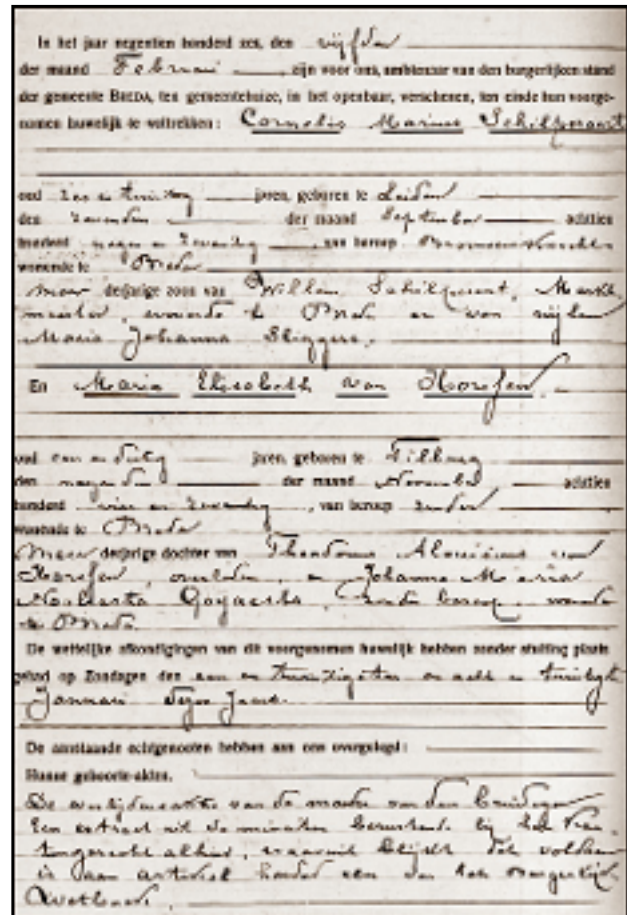 In het jaar negentien honderd zes, den vijfden
der maand Februari zijn voor ons, ambtenaar van den burgerlijken stand
der gemeente BREDA, ten gemeentehuize, in het openbaar, verschenen, ten einde hun voorge-
nomen huwelijk te voltrekken: Cornelis Marinus
oud zes en twintig jaren, geboren te Leiden
den zevenden der maand September achttien
honderd negen en zeventig, van beroep
wonende te Breda
Meer derjarige zoon van Willem
meester, wonende te Breda en van wijlen
Maria Johanna
En Maria Elisabeth van
oud een en dertig jaren, geboren te Tilburg
den negenden der maand November achttien
honderd vier en zeventig, van beroep zonder
wonende te Breda
Meer derjarige dochter van Theodorus Aloisius van
overleden, en Johanna Maria
zonder beroep, wonende
te Breda
De wettelijke afkondigingen van dit voorgenomen huwelijk hebben zonder stuiting plaats
gehad op Zondagen den een en twintigsten en acht en twintigst
Januari dezes jaars.
De aanstaande echtgenooten hebben aan ons overgelegd:
Hunne geboorte-akten.
De overlijdensakte van de moeder van den bruidegom
Een extract uit de minuten berustende bij het Kan-
tongerecht alhier, waaruit blijkt dat voldaan
is aan artikel honderd een van het Burgerlijk
Wetboek.